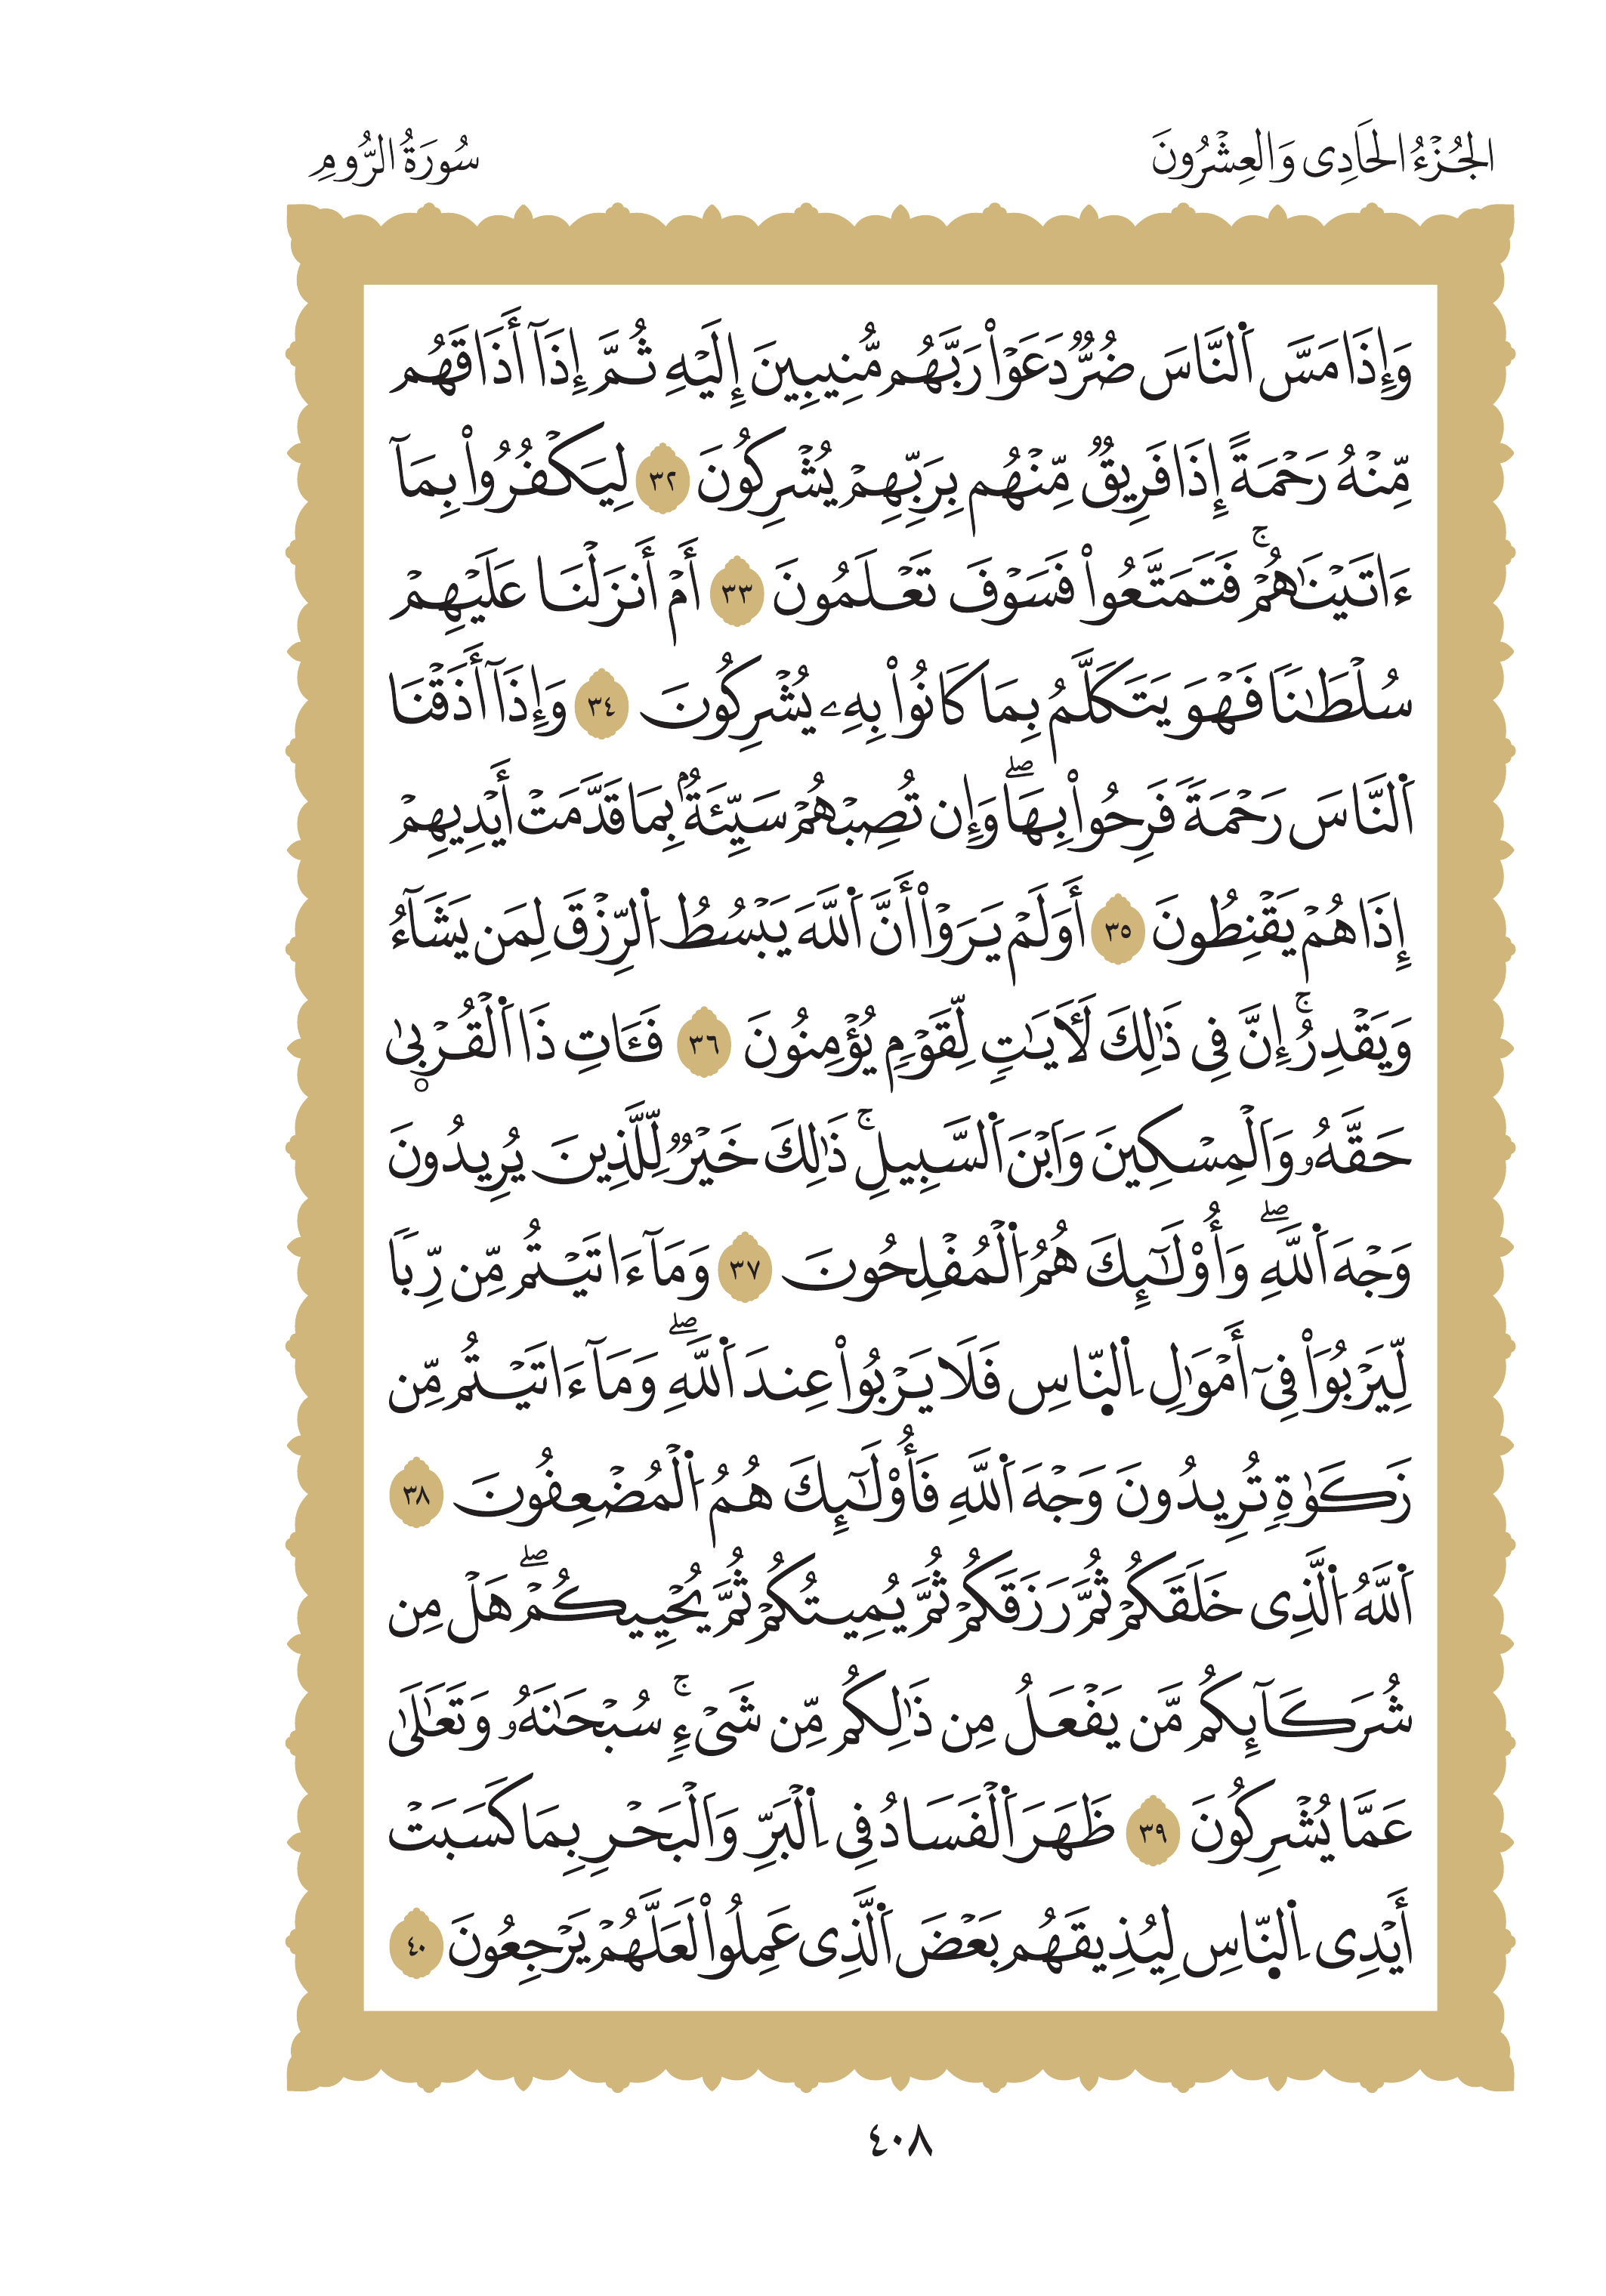 الجُزْءُ الحَادِى وَالعِشْرُونَ
سُورَةُ الرُّومِ
وَإِذَا مَسَّ اَ۬لنَّاسَ ضُرٌّ دَعَوۡاْ رَبَّهُم مُّنِيبِينَ إِلَيۡهِ ثُمَّ إِذَآ أَذَاقَهُم
مِّنۡهُ رَحۡمَةً إِذَا فَرِيقٌ مِّنۡهُم بِرَبِّهِمۡ يُشۡرِكُونَ ٣٢ لِيَكۡفُرُواْ بِمَآ
ءَاتَيۡنَٰهُمۡۚ فَتَمَتَّعُواْ فَسَوۡفَ تَعۡلَمُونَ ٣٣ أَمۡ أَنزَلۡنَا عَلَيۡهِمۡ
سُلۡطَٰنًا فَهۡوَ يَتَكَلَّمُ بِمَا كَانُواْ بِهِۦ يُشۡرِكُونَ ٣٤ وَإِذَآ أَذَقۡنَا
اَ۬لنَّاسَ رَحۡمَةً فَرِحُواْ بِهَاۖ وَإِن تُصِبۡهُمۡ سَيِّئَةُۢ بِمَا قَدَّمَتۡ أَيۡدِيهِمۡ
إِذَا هُمۡ يَقۡنِطُونَ ٣٥ أَوَلَمۡ يَرَوۡاْ أَنَّ اَ۬للَّهَ يَبۡسُطُ اُ۬لرِّزۡقَ لِمَن يَشَآءُ
وَيَقۡدِرُۚ إِنَّ فِى ذَٰلِكَ لَأٓيَٰتٍ لِّقَوۡمٍ يُؤۡمِنُونَ ٣٦ فَـَٔاتِ ذَا اَ۬لۡقُرۡبىٰ
حَقَّهُۥ وَالۡمِسۡكِينَ وَابۡنَ اَ۬لسَّبِيلِۚ ذَٰلِكَ خَيۡرٌ لِّلَّذِينَ يُرِيدُونَ
وَجۡهَ اَ۬للَّهِۖ وَأُوْلَٰٓئِكَ هُمُ اُ۬لۡمُفۡلِحُونَ ٣٧ وَمَآ ءَاتَيۡتُم مِّن رِّبًا
لِّيَرۡبُوَاْ فِىٓ أَمۡوَٰلِ اِ۬لنّاسِ فَلَا يَرۡبُواْ عِندَ اَ۬للَّهِۖ وَمَآ ءَاتَيۡتُم مِّن
زَكَوٰةٍ تُرِيدُونَ وَجۡهَ اَ۬للَّهِ فَأُوْلَٰٓئِكَ هُمُ اُ۬لۡمُضۡعِفُونَ ٣٨
اَ۬للَّهُ اُ۬لَّذِى خَلَقَكُمۡ ثُمَّ رَزَقَكُمۡ ثُمَّ يُمِيتُكُمۡ ثُمَّ يُحۡيِيكُمۡۖ هَلۡ مِن
شُرَكَآئِكُم مَّن يَفۡعَلُ مِن ذَٰلِكُم مِّن شَىۡءٍۚ سُبۡحَٰنَهُۥ وَتَعَٰلَىٰ
عَمَّا يُشۡرِكُونَ ٣٩ ظَهَرَ اَ۬لۡفَسَادُ فِى اِ۬لۡبَرِّ وَالۡبَحۡرِ بِمَا كَسَبَتۡ
أَيۡدِى اِ۬لنّاسِ لِيُذِيقَهُم بَعۡضَ اَ۬لَّذِى عَمِلُواْ لَعَلَّهُمۡ يَرۡجِعُونَ ٤٠
٤٠٨